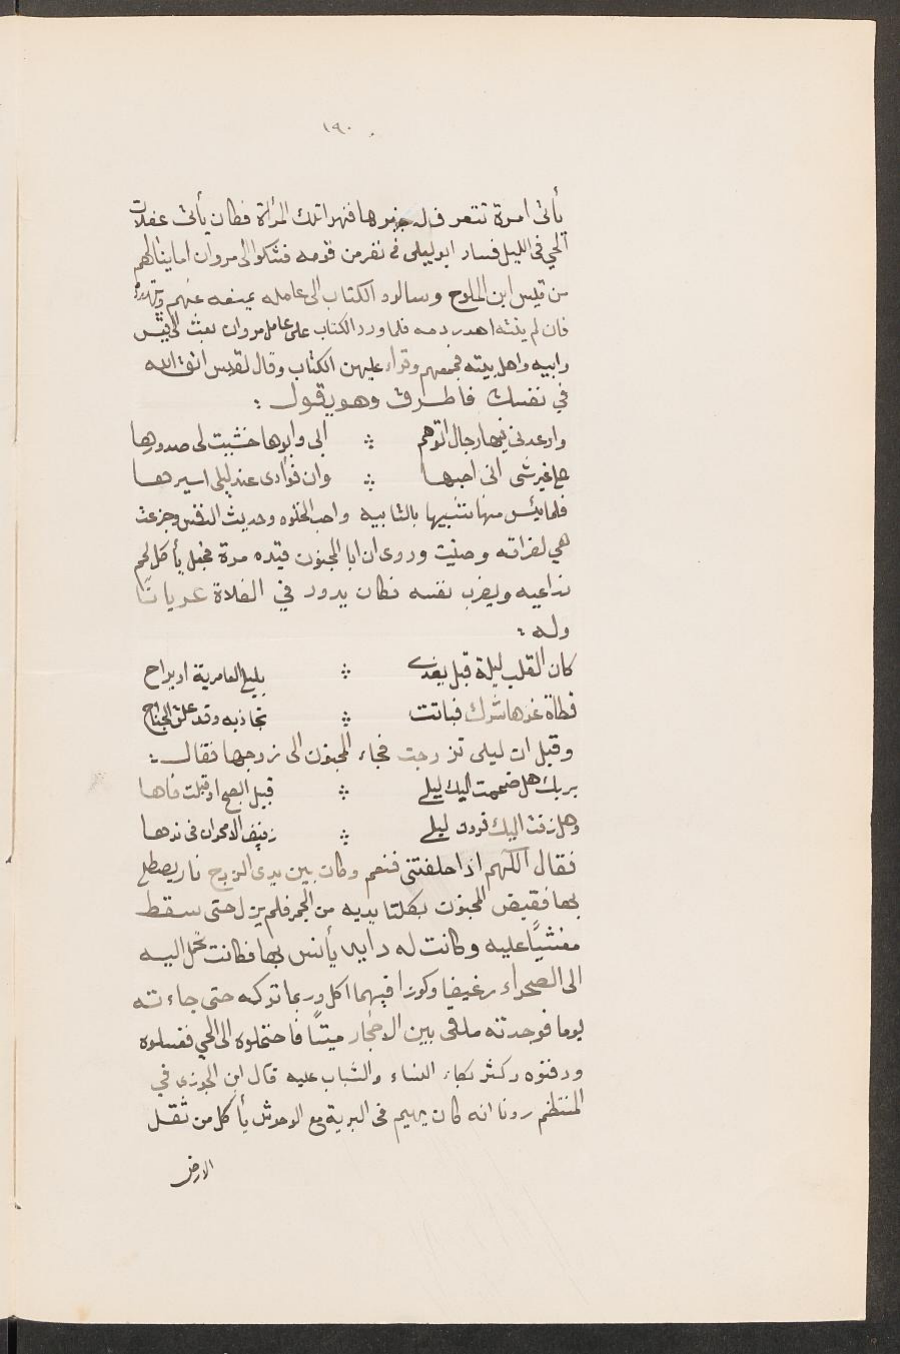 ١٩٠
يأتى امرة تتعرف له خبرها فنهوا تلك المرأة فكان يأتى غفلات
الحي فى الليل فسار ابو ليلى فى نفر من قومه فشكوا الى مروان ما ينالهم
من قيس ابن الملوح وسالوه الكتاب الى عامله بمنعه عنهم ويتهدده
فان لم ينته اهدر دمه فلما ورد الكتاب على عامل مروان بعث الى قيس
وابيه واهل بيته فجمعهم وقراء عليهم الكتاب وقال لقيس اتق الله
في نفسك فاطرق وهو يقول :
واوعدنى فيها رجال ابوهم ؞ ابى وابوها خشنت لى صدورها
على غير شى انى احبها ؞ وان فؤادى عند ليلى اسيرها
فلما يئس منها تشبيها بالثانيه واحب الخلوه وحديث النفس وجزعت
هي لفراقه وضنيت وروى ان ابا المجنون قيده مرة فجعل يأكل لحم
ذراعيه ويضرب نفسه فكان يدور في الفلاة عريانًا
وله :
كان القلب ليلة قيل يغدى ؞ بليلى العامرية او يراح
قطاة غرها شرك فباتت ؞ تجاذبه وقد علق الجناح
وقيل ان ليلى تزوجت فجاء المجنون الى زوجها فقال :
بربك هل ضممت اليك ليلى ؞ قبيل الصبح او قبلت فاها
وهل زفت اليك قرون ليلى ؞ زفيف الاقحوان فى نداها
فقال اللهم اذا حلفتنى فنعم وكان بين يدى الزوج نار يصطلى
بها فقبض المجنون بكلتا يديه من الجمر فلم يزل حتى سقط
مغشيًا عليه وكانت له داية يأنس بها فكانت تحمل اليه
الى الصحراء رغيفا وكوزا فيهما اكل وربما تركه حتى جاءته
يوما فوجدته ملقى بين الاحجار ميتًا فاحتملوه الى الحي فغسلوه
ودفنوه وكثر بكاء النساء والشباب عليه قال ابن الجوزى في
المنتظم روينا انه كان يهيم فى البرية مع الوحوش يأكل من ثقل
الارض